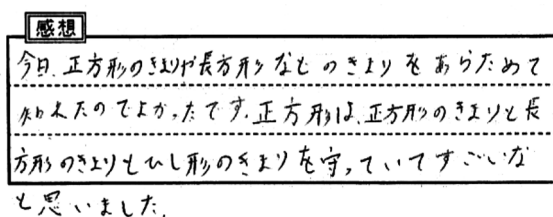 感想
今日、正方形のきまりや長方形などのきまりをあらためて
知れたのでよかったです。正方形は、正方形のきまりと長
方形のきまりとひし形のきまりを守っていてすごいな
と思いました。